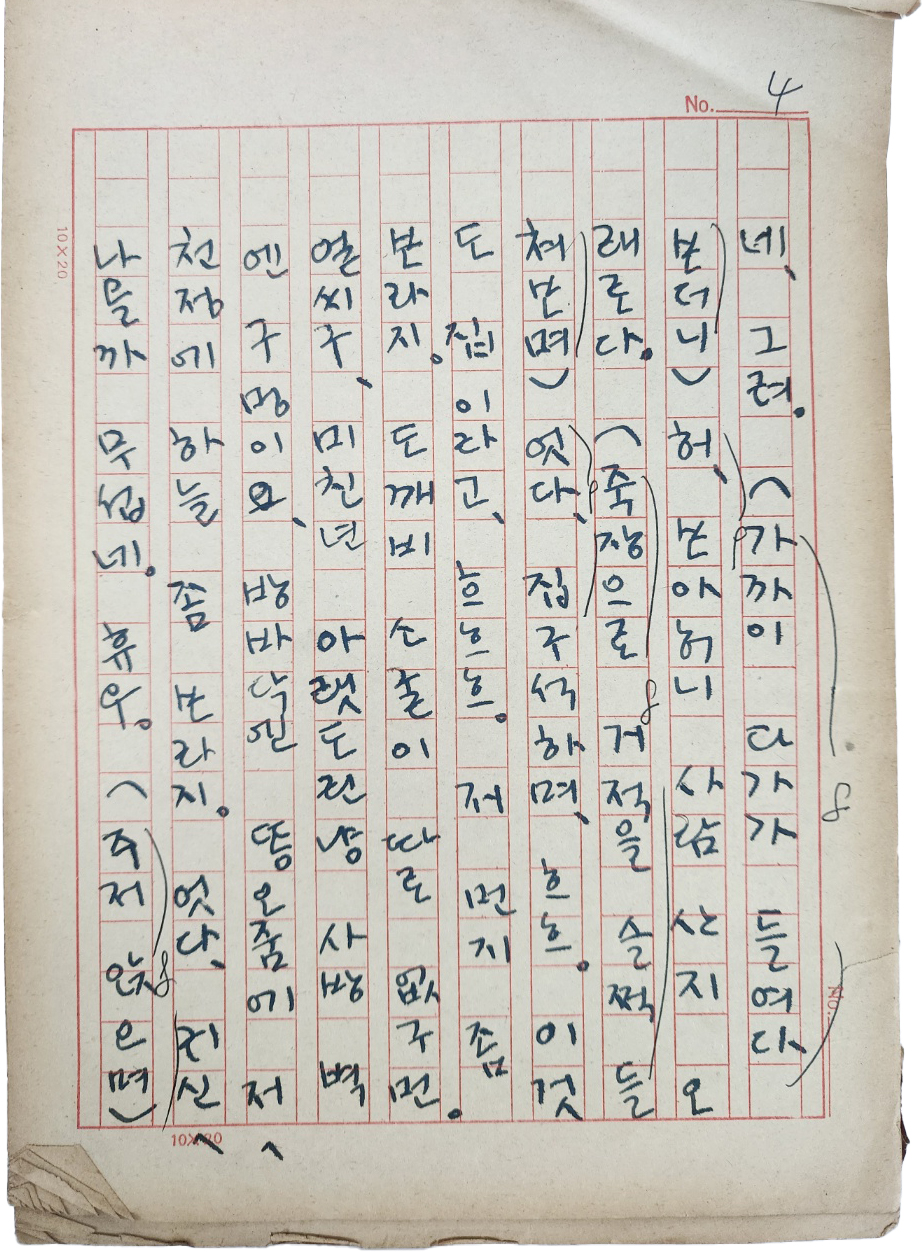 No. 4
네, 그려. (가까이 다가가 들여다
본더니) 허, 본아허니 사람 산지 오
래로다. (죽장으로 거적을 슬쩍 들
쳐보며) 엇다, 집구석하며, 흐흐. 이것
도 집이라고, 흐흐흐. 저 먼지 좀
보라지. 도깨비 소굴이 따로 없구먼.
얼씨구, 미친년 아랫도린냥 사방 벽
엔 구멍이요, 방바닥엔 똥오줌에 저
천정에 하늘 좀 보라지. 엇다, 귀신
나올까 무섭네. 휴우. (주저앉으며)
10×20
10×20
No.